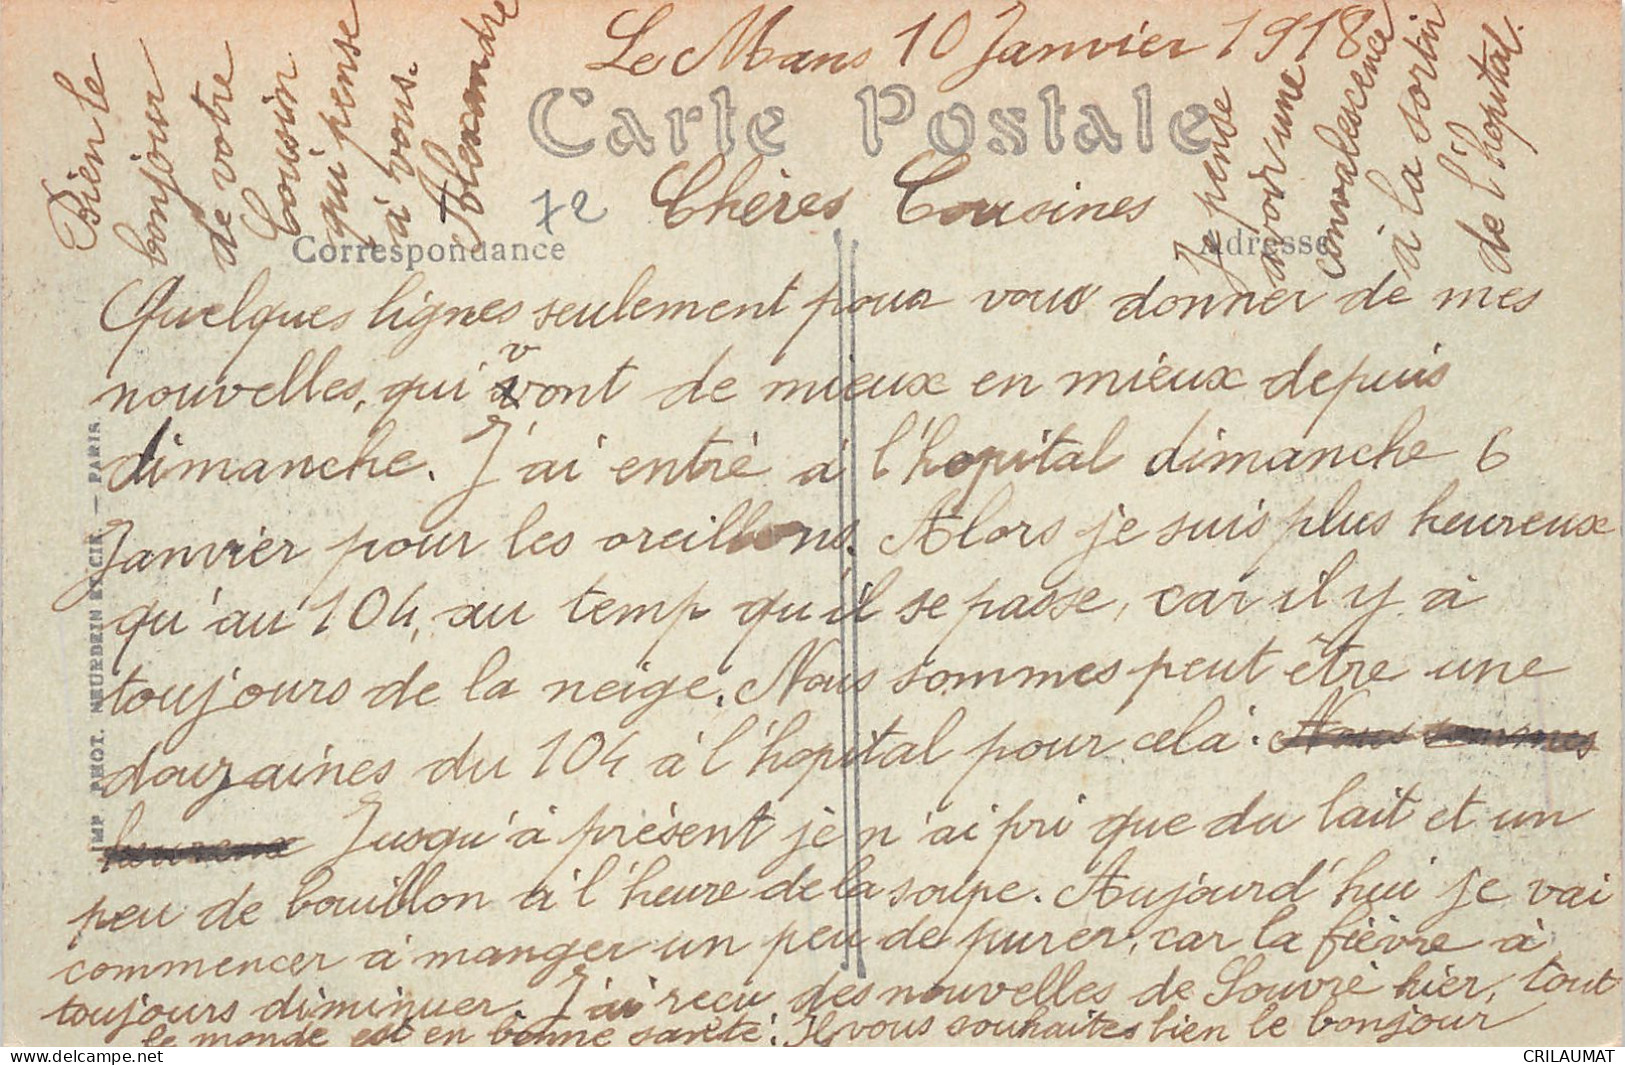 Le Mans 10 Janvier 1918
Carte Postale
72
Chères Cousines
Correspondance
Adresse
Quelques lignes seulement pour vous donner de mes
nouvelles, qui vont de mieux en mieux depuis
dimanche. J'ai entré à l'hopital dimanche 6
Janvier pour les oreillons. Alors je suis plus heureux
qu'au 104, au temp qu'il se passe, car il y à
toujours de la neige. Nous sommes peut être une
douzaines du 104 à l'hopital pour cela. Nous sommes
heureux Jusqu'à présent je n'ai pri que du lait et un
peu de bouillon à l'heure de la soupe. Aujourd'hui je vai
commencer à manger un peu de purer, car la fièvre à
toujours diminuer. J'ai reçu des nouvelles de Souvré hier, tout
le monde est en bonne santé. Il vous souhaites bien le bonjour
Je pense
avoir une
convalescence
à la sortir
de l'hopital.
Bien le
bonjour
de votre
Cousin
qui pense
à vous.
Alexandre
IMP. PHOT. NEURDEIN ET CIE. — PARIS.
CRILAUMAT